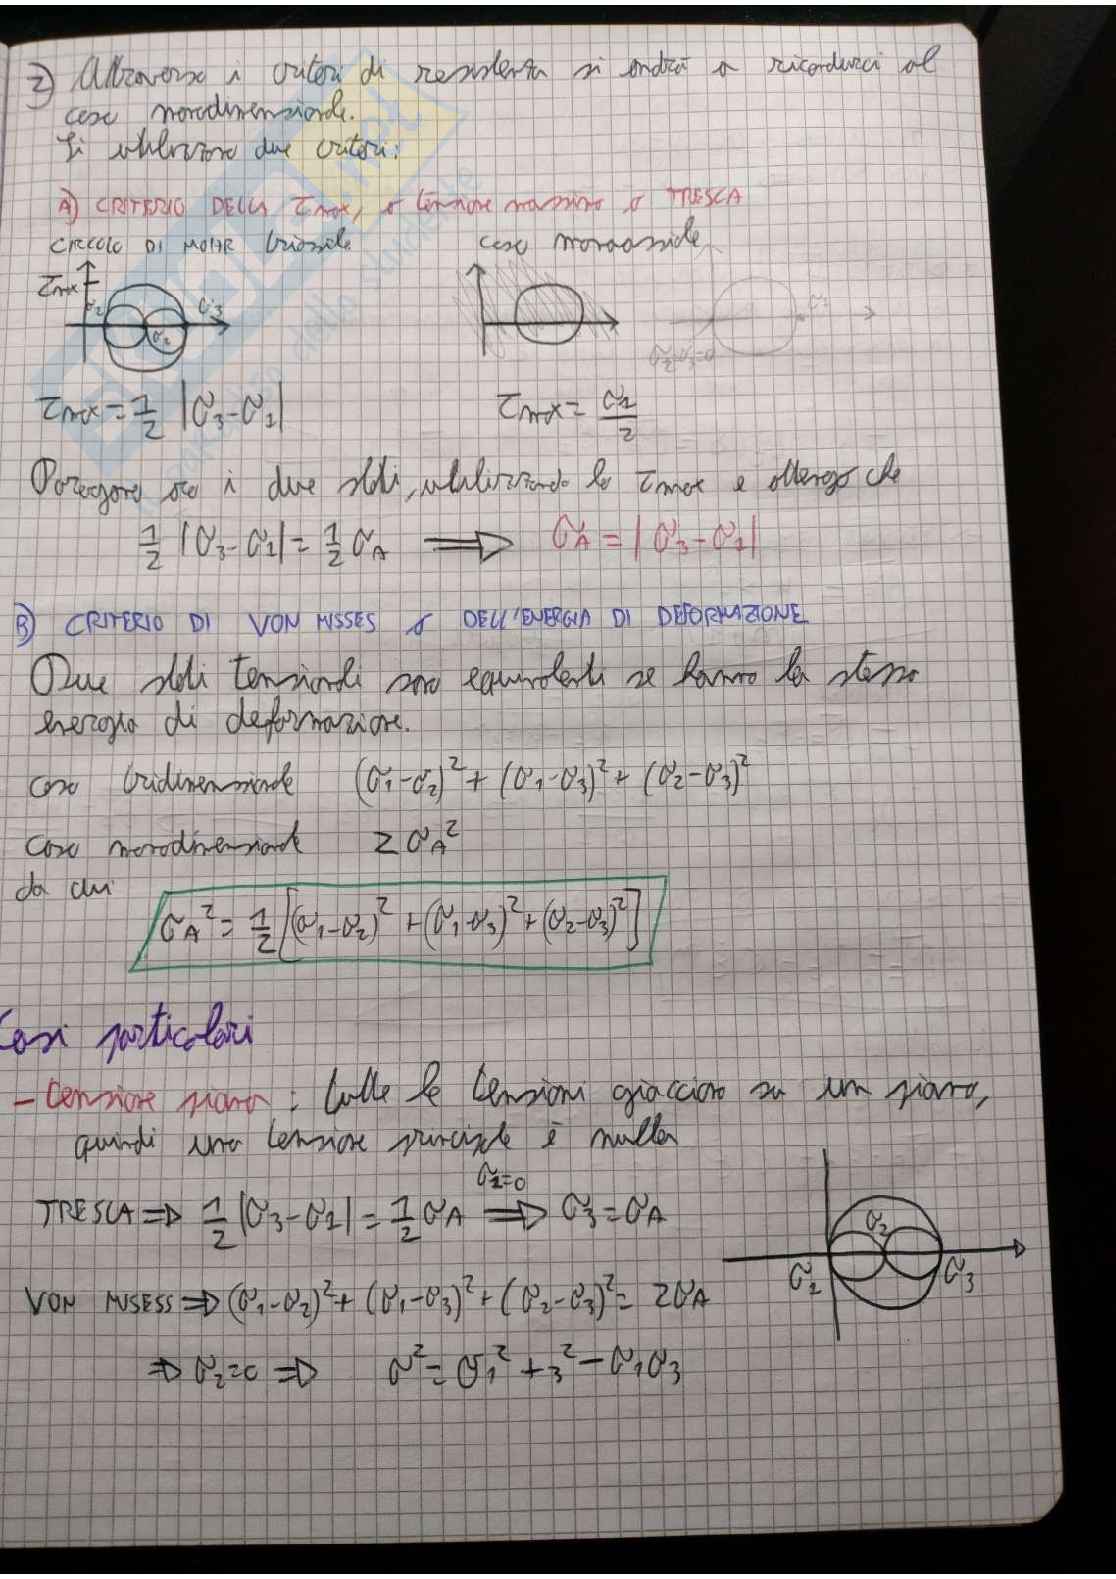 2) Attraverso i criteri di resistenza si andrà a ricondurci al
caso monodimensionale.
Si utilizzano due criteri:
A) CRITERIO DELLA τmax, o tensione massima o TRESCA
CIRCOLO DI MOHR triassiale caso monoassiale
τmax σ2 σ3 σ2
σ2=σ3=0
τmax = 1/2 |σ3-σ1| τmax = σ1/2
Paragono ora i due stati, utilizzando la τmax e ottengo che
1/2 |σ3-σ1| = 1/2 σA ⟹ σA = |σ3-σ1|
B) CRITERIO DI VON MISSES o DELL'ENERGIA DI DEFORMAZIONE
Due stati tensionali sono equivalenti se hanno la stessa
energia di deformazione.
caso tridimensionale (σ1-σ2)² + (σ1-σ3)² + (σ2-σ3)²
caso monodimensionale 2σA²
da cui
σA² = 1/2 [(σ1-σ2)² + (σ1-σ3)² + (σ2-σ3)²]
Casi particolari
- tensione piana : tutte le tensioni giacciono su un piano,
quindi una tensione principale è nulla
TRESCA ⇒ 1/2 |σ3-σ1| = 1/2 σA σ1=0 ⟹ σ3=σA
σ2
σ1 σ3
VON MISESS ⇒ (σ1-σ2)² + (σ1-σ3)² + (σ2-σ3)² = 2σA
⇒ σ2=0 ⇒ σ² = σ1² + 3² - σ1σ3